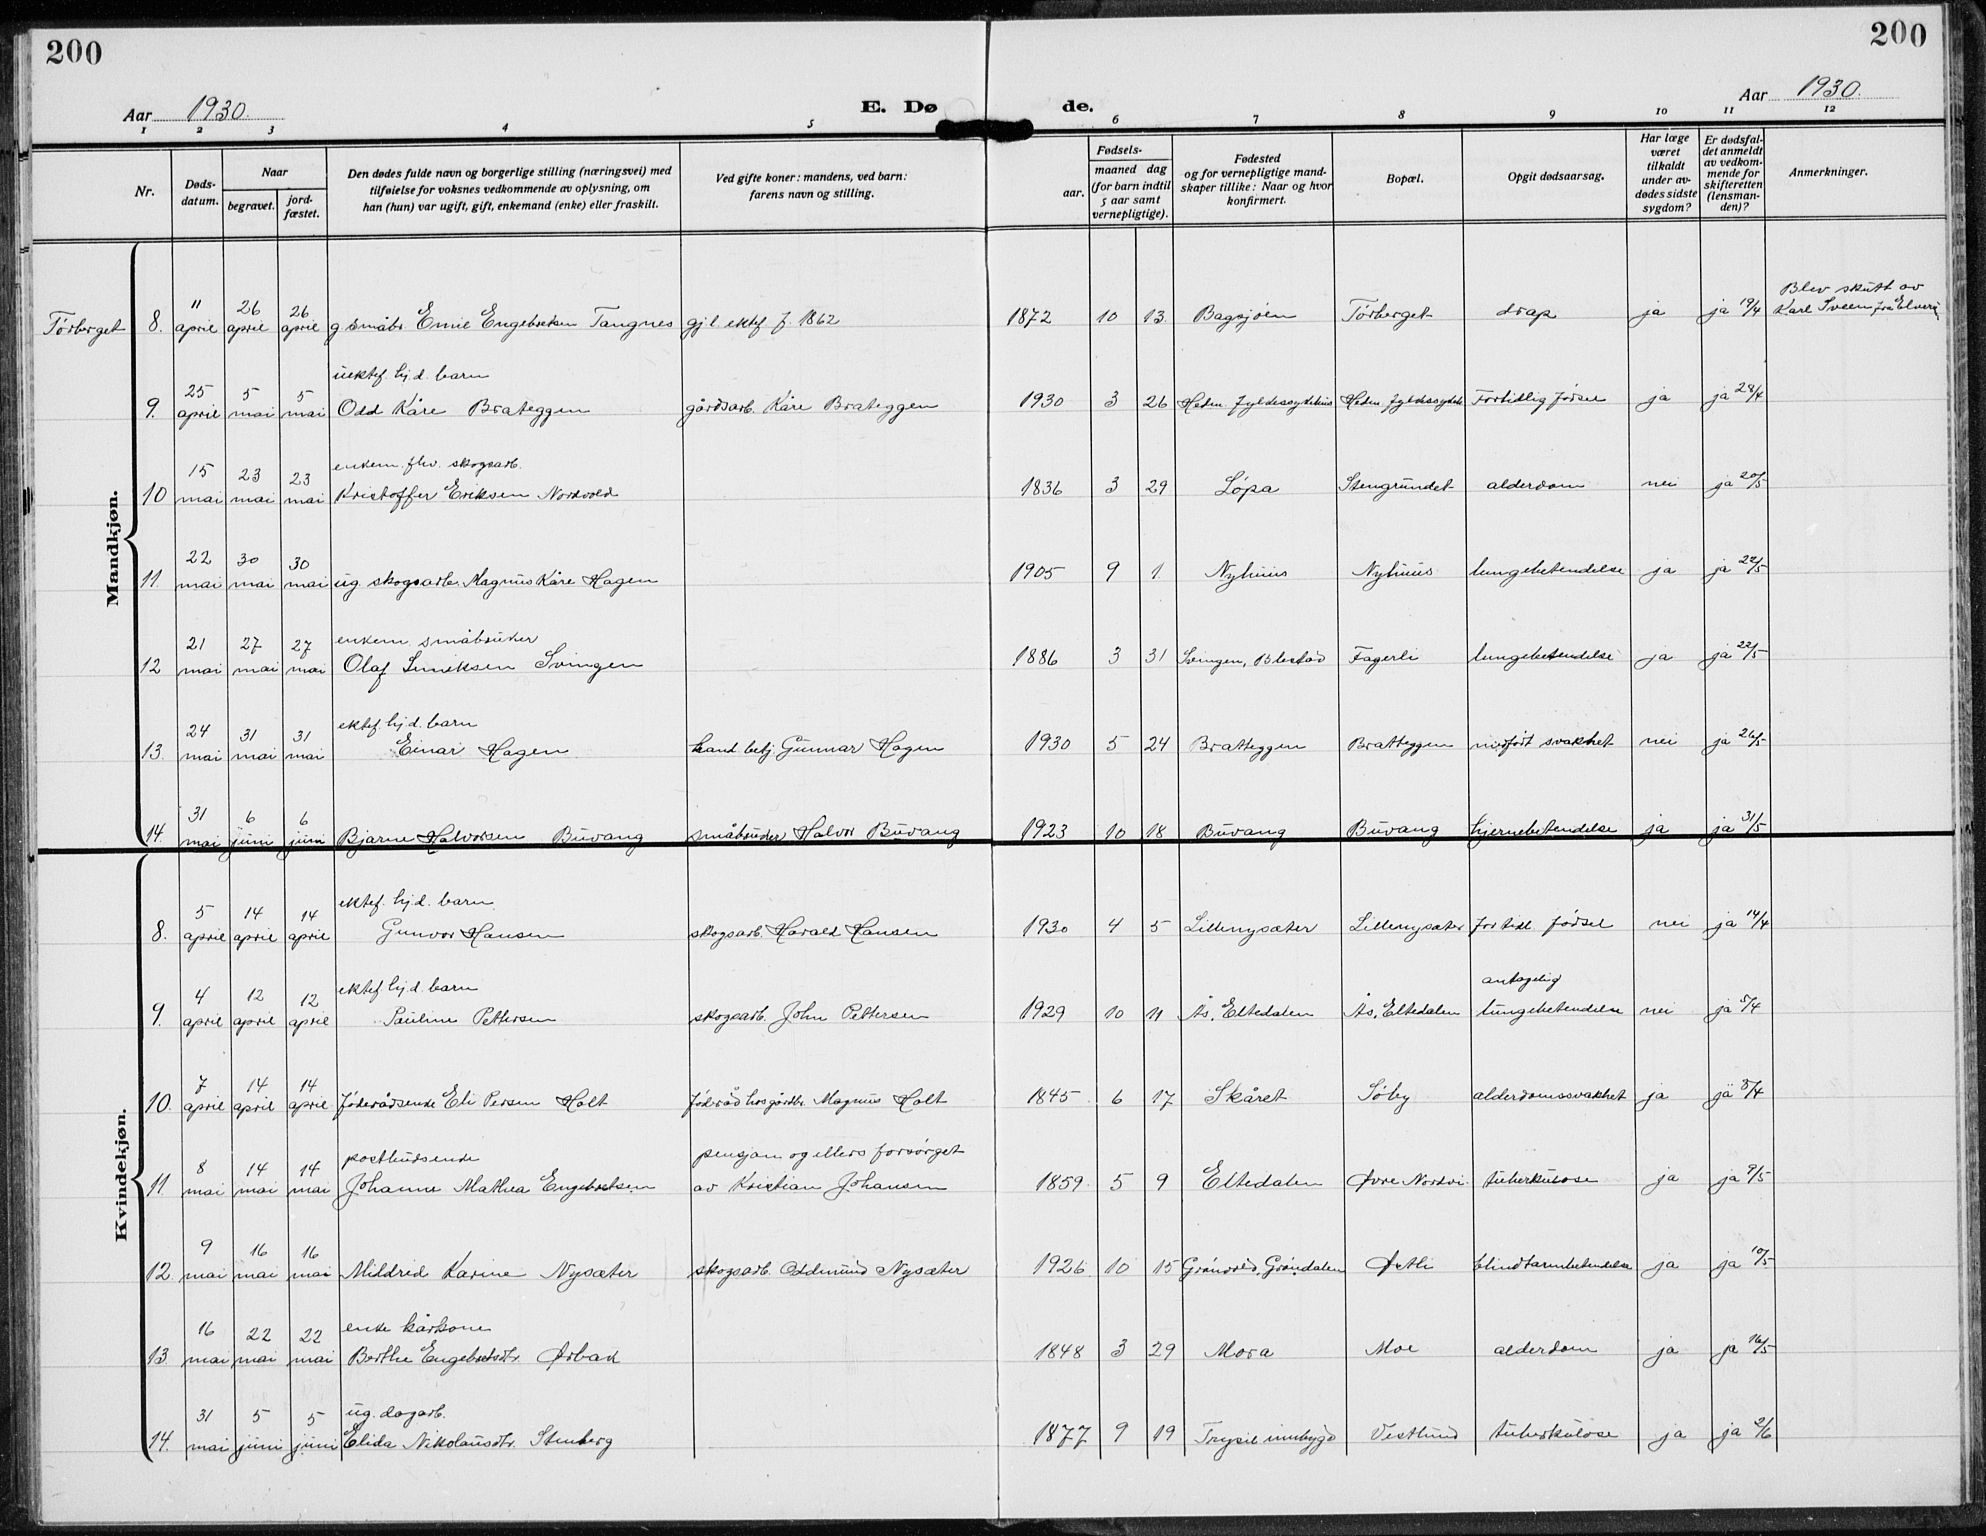 200
200
Aar 1930.
E. Døde.
Aar 1930.
1 2 3 4 5 6 7 8 9 10 11 12
Nr.
Døds-datum.
Naar
begravet.
jord-fæstet.
Den dødes fulde navn og borgerlige stilling (næringsvei) med
tilføielse for voksnes vedkommende av oplysning, om
han (hun) var ugift, gift, enkemand (enke) eller fraskilt.
Ved gifte koner: mandens, ved barn:
farens navn og stilling.
Fødsels-
aar.
maaned dag
(for barn indtil
5 aar samt
vernepligtige).
Fødested
og for vernepligtige mand-
skaper tillike: Naar og hvor
konfirmert.
Bopæl.
Opgit dødsaarsag.
Har læge
været
tilkaldt
under av-
dødes sidste
sygdom?
Er dødsfal-
det anmeldt
av vedkom-
mende for
skifteretten
(lensman-
den)?
Anmerkninger.
Mandkjøn.
Tørberget 8. 11 april 26 april 26 april g småbr. Emil Engebretsen Tangnes gjl. ektef. f. 1862 1872 10 13 Bagsjøen Tørberget drap ja ja 19/4 Blev skutt av
Karl Sveen fra Elverum
9. 25 april 5 mai 5 mai uektef. hj.d. barn
Odd Kåre Brateggen gårdsarb. Kåre Brateggen 1930 3 26 Hedm. fylkessykehus Hedm. fylkessykeh. Fortidlig fødsel ja ja 28/4
10 15 mai 23 mai 23 mai enkem. flv. skogsarb.
Kristoffer Eriksen Nordvold 1836 3 29 Løpa Stengrundet alderdom nei ja 20/5
11. 22 mai 30 mai 30 mai ug. skogsarb. Magnus Kåre Hagen 1905 9 1 Nyhuus Nyhuus lungebetendelse ja ja 22/5
12 21 mai 27 mai 27 mai enkem. småbruker
Olaf Svingen 1886 3 31 Svingen, Fagerli lungebetendelse ja ja 22/5
13. 24 mai 31 mai 31 mai ektef. hj.d. barn
Einar Hagen hand. betj. Gunnar Hagen 1930 5 24 Bratteggen Bratteggen medfødt svakhet nei ja 26/5
14. 31 mai 6 juni 6 juni Bjarne Halvorsen Buvang småbruker Halvor Buvang 1923 10 18 Buvang Buvang hjernebetendelse ja ja 31/5
Kvindekjøn.
8. 5 april 14 april 14 april ektef. hj.d. barn
Gunvor Hansen skogsarb. Harald Hansen 1930 4 5 Lillenysæter Lillenysæter for tidl. fødsel nei ja 14/4
9. 4 april 12 april 12 april ektef. hj.d. barn
Pauline Pettersen skogsarb. John Pettersen 1929 10 11 Ås, Eltedalen Ås, Eltedalen antagelig
lungebetendelse nei ja 5/4
10. 7 april 14 april 14 april føderådsenke Eli Persen Holt føderåd hos gårdbr. Magnus Holt 1845 6 17 Skåret Søby alderdomssvakhet ja ja 8/4
11. 8 mai 14 mai 14 mai
Johanne Mathea Engebretsen pensjon og ellers forsørget
av Kristian Johansen 1859 5 9 Eltedalen Øvre Nordvi tuberkulose ja ja 9/5
12. 9 mai 16 mai 16 mai Mildrid Karine Nysæter skogsarb. Oddmund Nysæter 1926 10 15 Grønvold, Grøndalen Østli blindtarmbetendelse ja ja 10/5
13. 16 mai 22 mai 22 mai enke kårkone
Berthe Engebretsdtr. Ørbak 1848 3 29 Mora Moe alderdom ja ja 16/5
14. 31 mai 5 juni 5 juni ug. dagarb.
Elida Nikolausdtr. Stenberg 1877 9 19 Trysil innbygd Vestlund tuberkulose ja ja 2/6